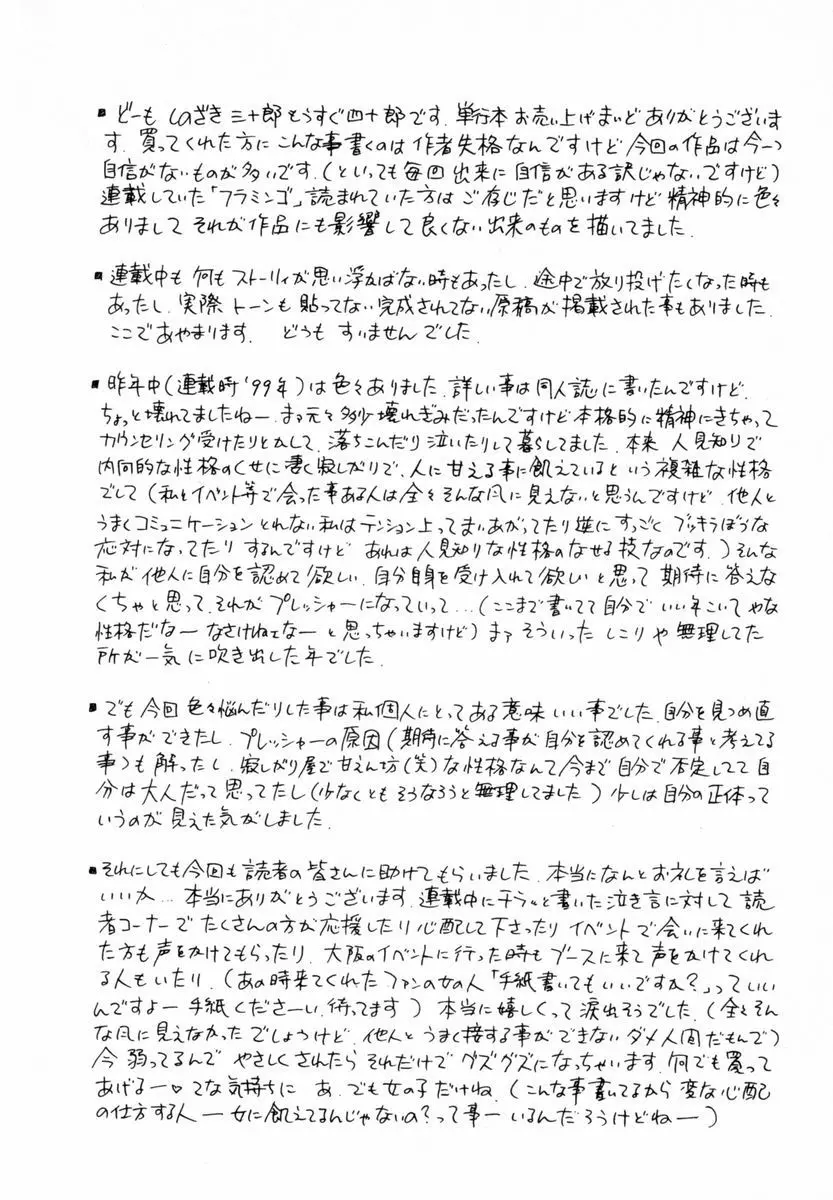 ・どーも しのざき三十郎もうすぐ四十郎です。単行本お売い上げまいどありがとうございま
す。買ってくれた方にこんな事書くのは作者失格なんですけど今回の作品は今一つ
自信がないものが多いです。(といっても毎回出来に自信がある訳じゃないですけど)
連載していた「フラミンゴ」読まれていた方はご存じだと思いますけど精神的に色々
ありまして それが作品にも影響して良くない出来のものを描いてました。
・連載中も何もストーリィが思い浮かばない時もあったし、途中で放り投げたくなった時も
あったし、実際トーンも貼ってない完成されてない原稿が掲載された事もありました。
ここであやまります。 どうもすいませんでした。
・昨年中(連載時'99年)は色々ありました。詳しい事は同人誌に書いたんですけど、
ちょっと壊れてましたねー。まァ元々多少壊れぎみだったんですけど本格的に精神にきちゃって
カウンセリング受けたりとかして、落ちこんだり泣いたりして暮らしてました。本来 人見知りで
内向的な性格のくせに凄く寂しがりで、人に甘える事に飢えているという複雑な性格
でして(私とイベント等で会った事ある人は全々そんな風に見えないと思うんですけど、他人と
うまくコミュニケーションとれない私はテンション上ってまいあがってたり逆にすっごくブッキラぼうな
応対になってたりするんですけど あれは人見知りな性格のなせる技なのです。)そんな
私が他人に自分を認めて欲しい、自分自身を受け入れて欲しいと思って期待に答えな
くちゃと思って、それがプレッシャーになっていって…(ここまで書いてて自分でいい年こいてやな
性格だなー なさけねェなーと思っちゃいますけど)まァそういった しこりや無理してた
所が一気に吹き出した年でした。
・でも今回色々悩んだりした事は私個人にとってある意味いい事でした。自分を見つめ直
す事ができたし、プレッシャーの原因(期待に答える事が自分を認めてくれる事と考えてる
事)も解ったし、寂しがり屋で甘えん坊(笑)な性格なんて今まで自分で不定してて自
分は大人だって思ってたし(少なくともそうなろうと無理してました)少しは自分の正体って
いうのが見えた気がしました。
・それにしても今回も読者の皆さんに助けてもらいました。本当になんとお礼を言えば
いいか… 本当にありがとうございます。連載中にチラッと書いた泣き言に対して読
者コーナーでたくさんの方が応援したり心配して下さったり イベントで会いに来てくれ
た方も声をかけてもらったり、大阪のイベントに行った時もブースに来て声をかけてくれ
る人もいたり、(あの時来てくれたファンの女の人「手紙書いてもいいですか?」っていい
んですよー 手紙くださーい、待ってます)本当に嬉しくって涙出そうでした。(全々そん
な風に見えなかったでしょうけど、他人とうまく接する事ができないダメ人間だもんで)
今 弱ってるんで やさしくされたら それだけでグズグズになっちゃいます。何でも買って
あげるー♡てな気持ちに あ、でも女の子だけね。(こんな事書いてるから変な心配
の仕方する人ー女に飢えてるんじゃないの?って事ーいるんだろうけどねー)